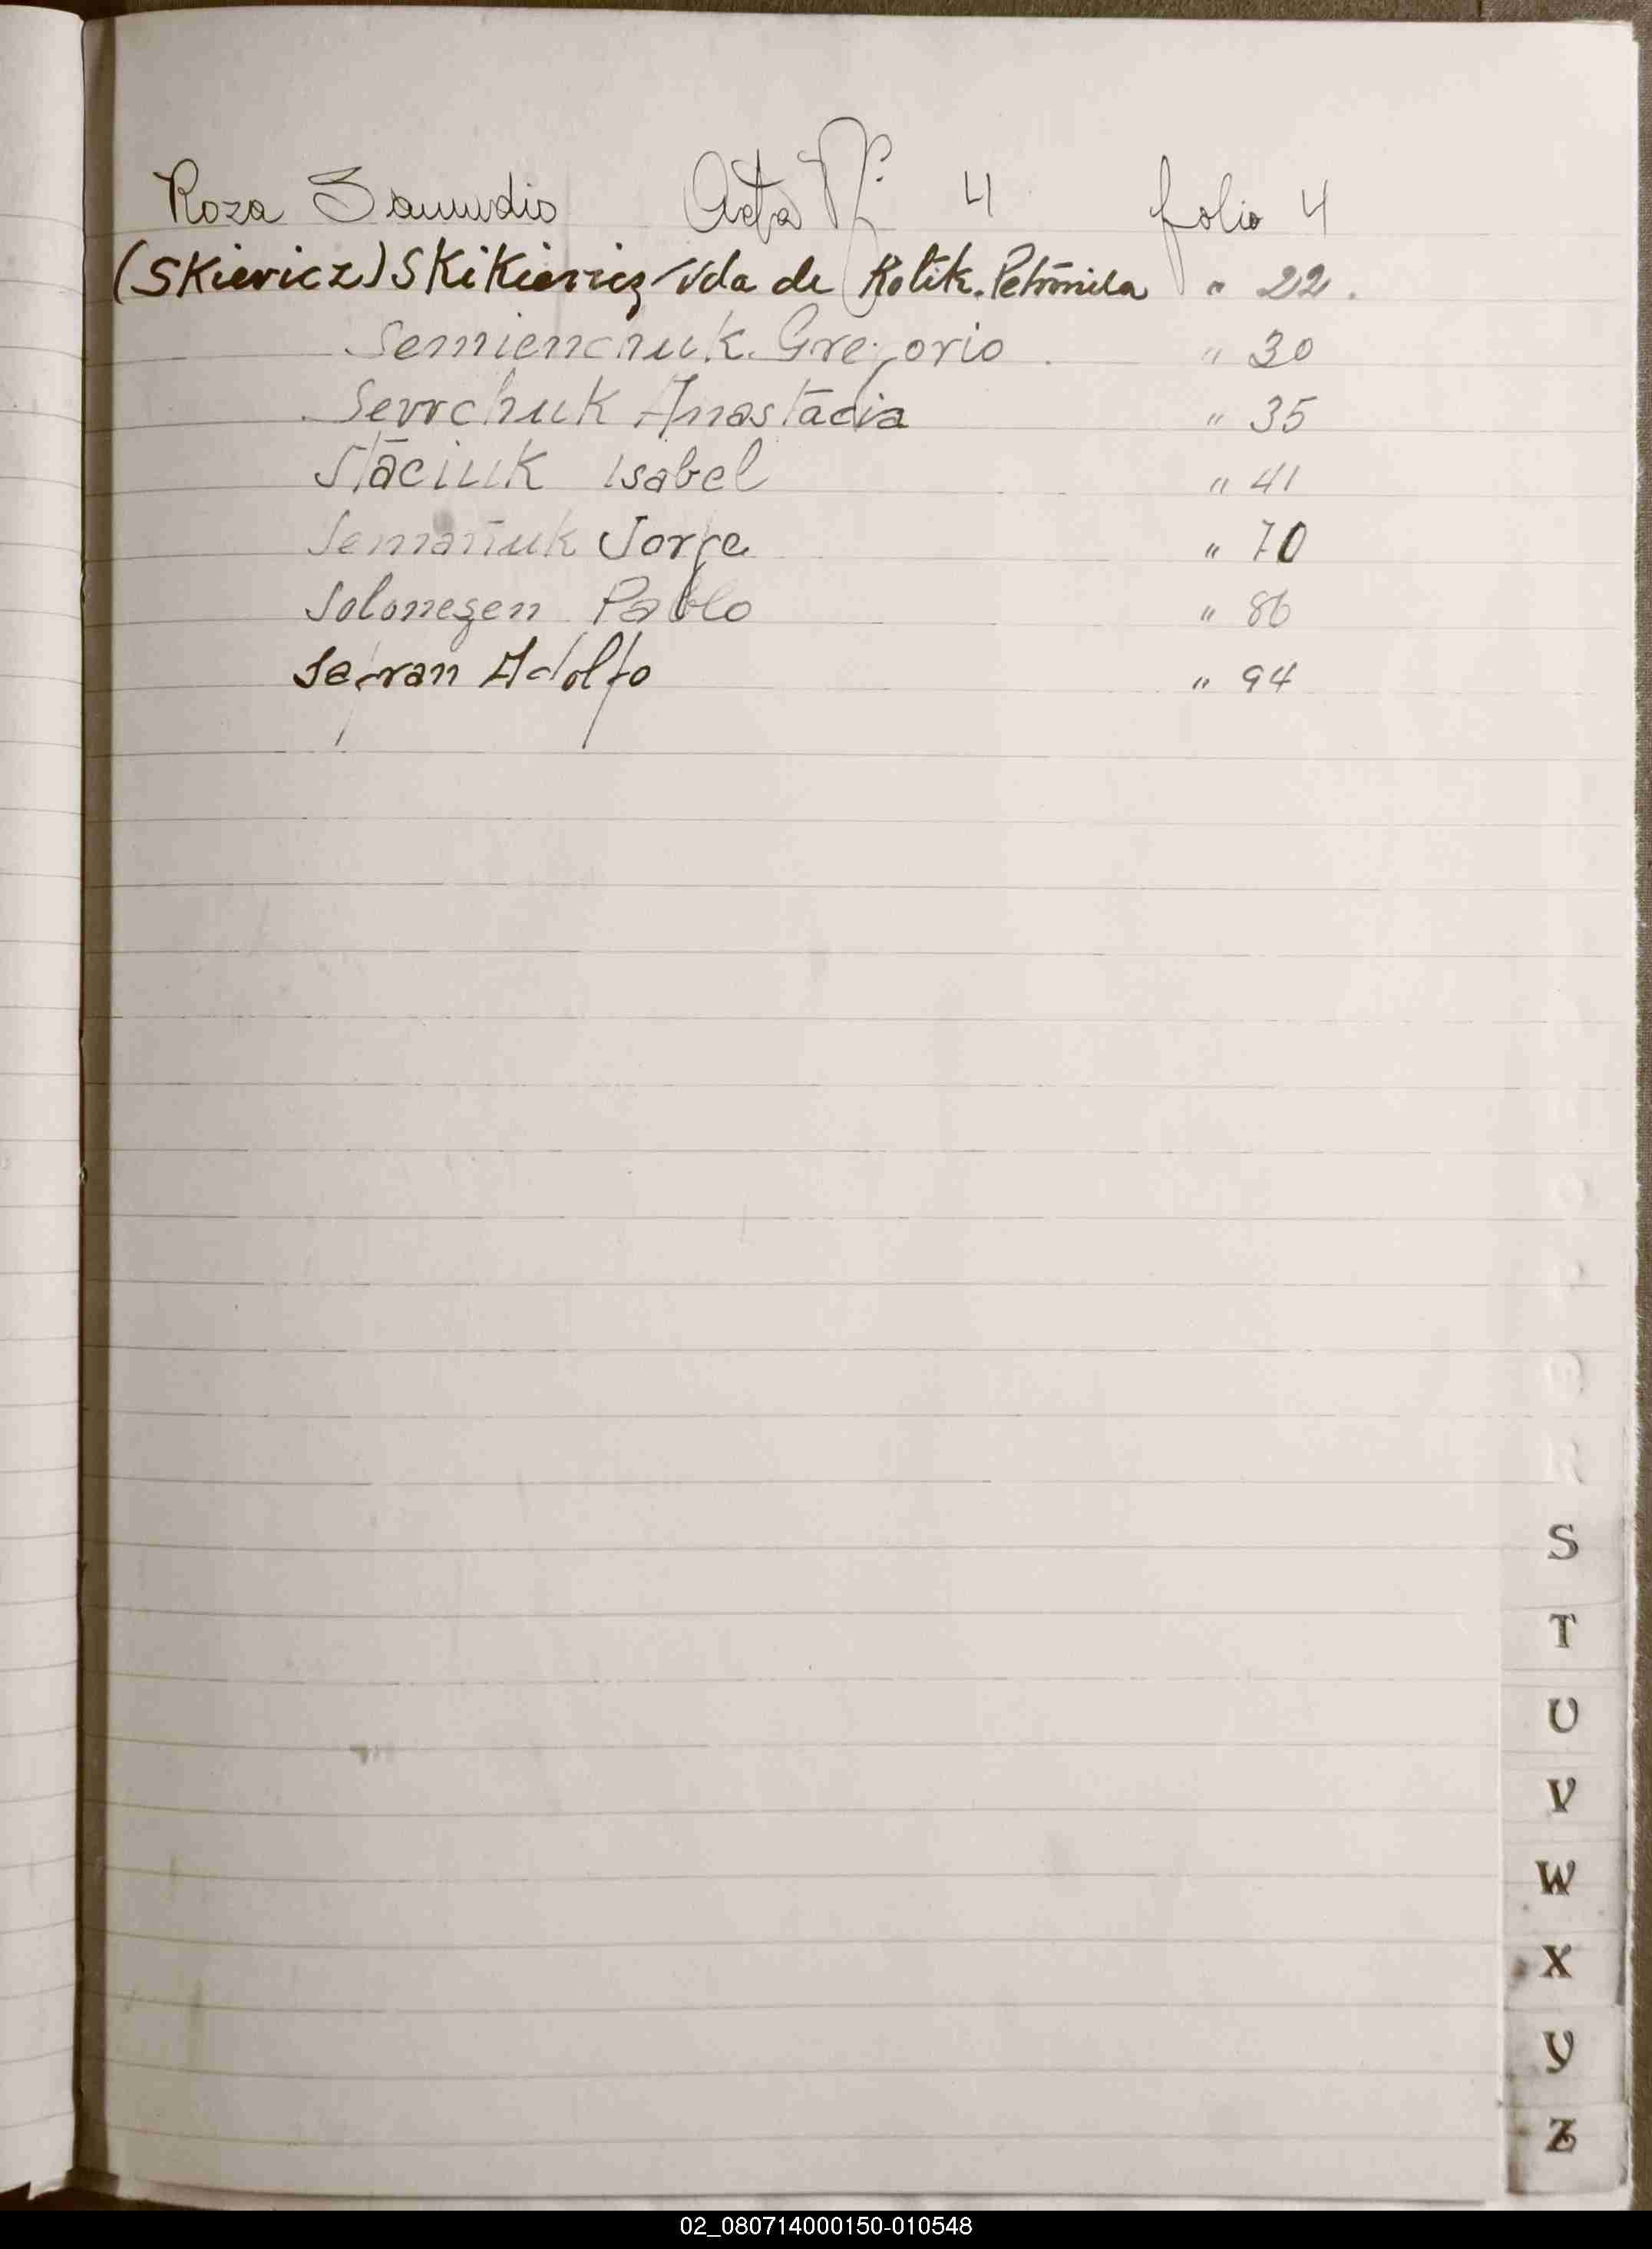 Roza Samudio Acta Nº 4 folio 4
(Skievicz) Skikievicz Vda de Kolik. Petronila " 22.
Semienchuk. Gregorio. " 30
Sevrchuk Anastacia " 35
Staciuk Isabel " 41
Semaniuk Jorge " 70
Solonezen Pablo " 86
Safran Adolfo " 94
S
T
U
V
W
X
Y
Z
02_080714000150-010548